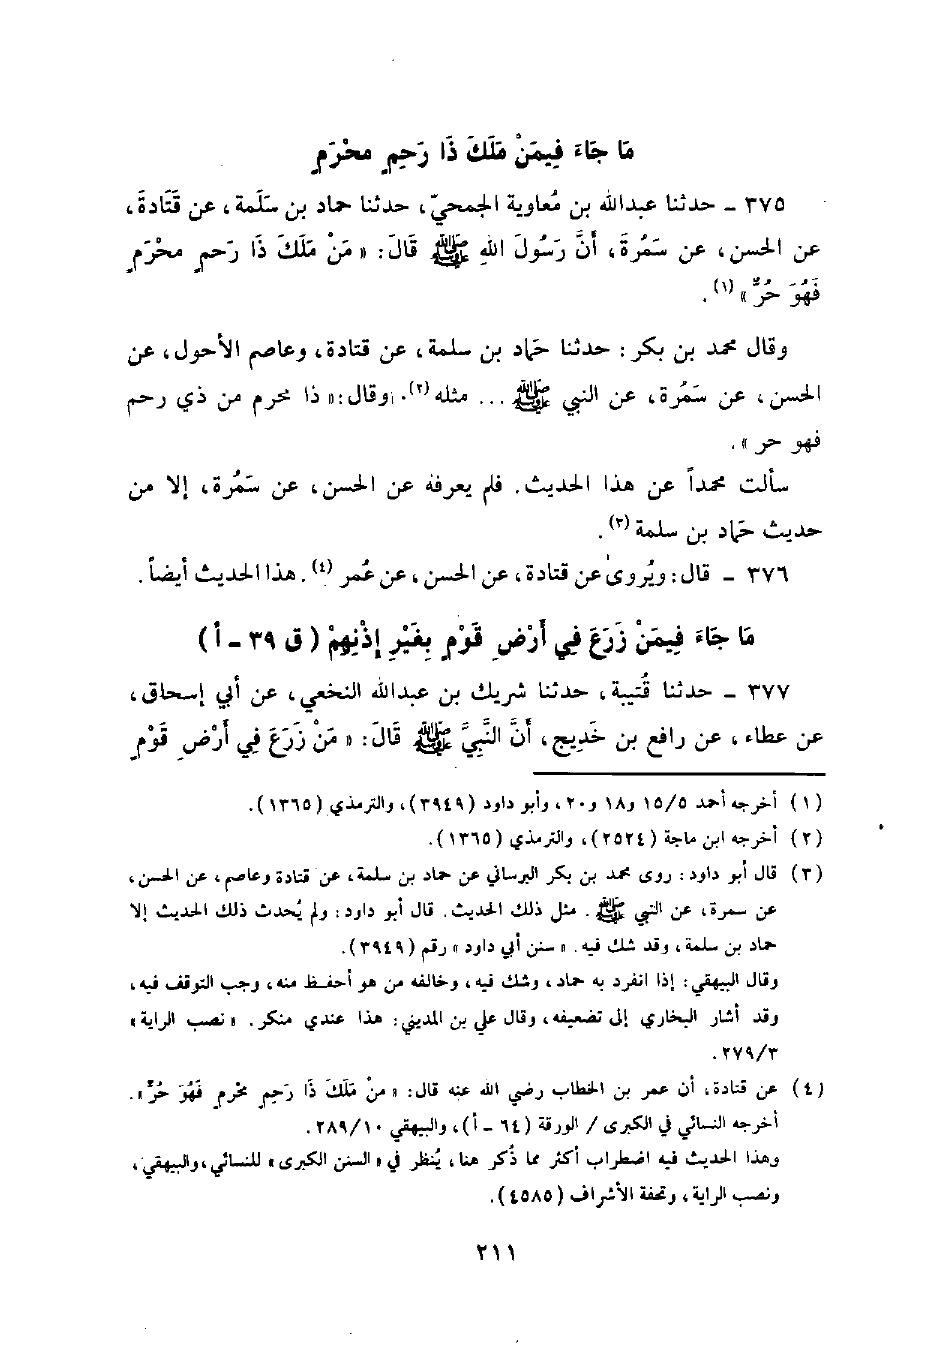 مَا جَاءَ فِيمَنْ مَلَكَ ذَا رَحِمٍ محْرَمٍ
٣٧٥ ـ حدثنا عبدالله بن مُعاوية الجمحيّ، حدثنا حماد بن سَلَمة، عن قَتَادةَ،
عن الحسن، عن سَمُرةَ، أَنَّ رَسُولَ اللهِ ﷺ قَالَ: «مَنْ مَلَكَ ذَا رَحمٍ محْرَمٍ
فَهُوَ حُرٌّ» (١).
وقال محمد بن بكر: حدثنا حَماد بن سلمة، عن قتادة، وعاصم الأحول، عن
الحسن، عن سَمُرة، عن النبي ﷺ ... مثله (٢). وقال: «ذا محرم من ذي رحم
فهو حر».
سألت محمداً عن هذا الحديث. فلم يعرفه عن الحسن، عن سَمُرة، إلا من
حديث حَماد بن سلمة (٣).
٣٧٦ ـ قال: ويُروى عن قتادة، عن الحسن، عن عُمر (٤). هذا الحديث أيضاً.
مَا جَاءَ فِيمَنْ زَرَعَ فِي أَرْضِ قَوْمٍ بِغَيْرِ إِذْنِهِمْ (ق ٣٩ ـ أ)
٣٧٧ ـ حدثنا قُتيبة، حدثنا شريك بن عبدالله النخعي، عن أبي إسحاق،
عن عطاء، عن رافع بن خَدِيج، أَنَّ النَّبِيَّ ﷺ قَالَ: «مَنْ زَرَعَ فِي أَرْضِ قَوْمٍ
(١) أخرجه أحمد ١٥/٥ و١٨ و٢٠، وأبو داود (٣٩٤٩)، والترمذي (١٣٦٥).
(٢) أخرجه ابن ماجة (٢٥٢٤)، والترمذي (١٣٦٥).
(٣) قال أبو داود: روى محمد بن بكر البرساني عن حماد بن سلمة، عن قتادة وعاصم، عن الحسن،
عن سمرة، عن النبي ﷺ. مثل ذلك الحديث. قال أبو داود: ولم يُحدث ذلك الحديث إلا
حماد بن سلمة، وقد شك فيه. «سنن أبي داود» رقم (٣٩٤٩).
وقال البيهقي: إذا انفرد به حماد، وشك فيه، وخالفه من هو أحفظ منه، وجب التوقف فيه،
وقد أشار البخاري إلى تضعيفه، وقال علي بن المديني: هذا عندي منكر. «نصب الراية»
٢٧٩/٣.
(٤) عن قتادة، أن عمر بن الخطاب رضي الله عنه قال: «منْ مَلَكَ ذَا رَحِمٍ محْرمٍ فَهُوَ حُرٌّ».
أخرجه النسائي في الكبرى / الورقة (٦٤ ـ أ)، والبيهقي ٢٨٩/١٠.
وهذا الحديث فيه اضطراب أكثر مما ذُكر هنا، يُنظر في «السنن الكبرى» للنسائي، والبيهقي،
ونصب الراية، وتحفة الأشراف (٤٥٨٥).
٢١١